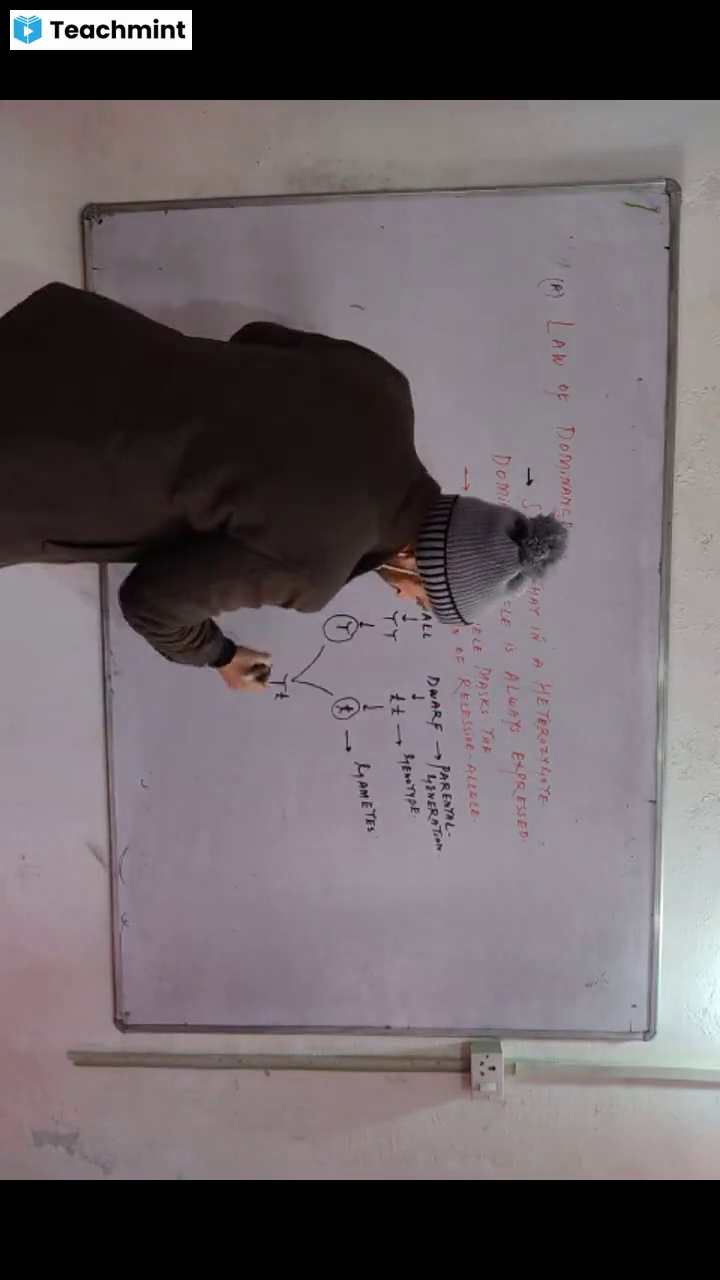 Teachmint
(A) LAW OF DOMINANCE
IN A HETEROZYGOTE
IS ALWAYS EXPRESSED.
MASKS THE
OF RECESSIVE-ALLELE.
DWARF → PARENTAL-
GENERATION.
TT tt → GENOTYPE.
T t → GAMETES.
Tt